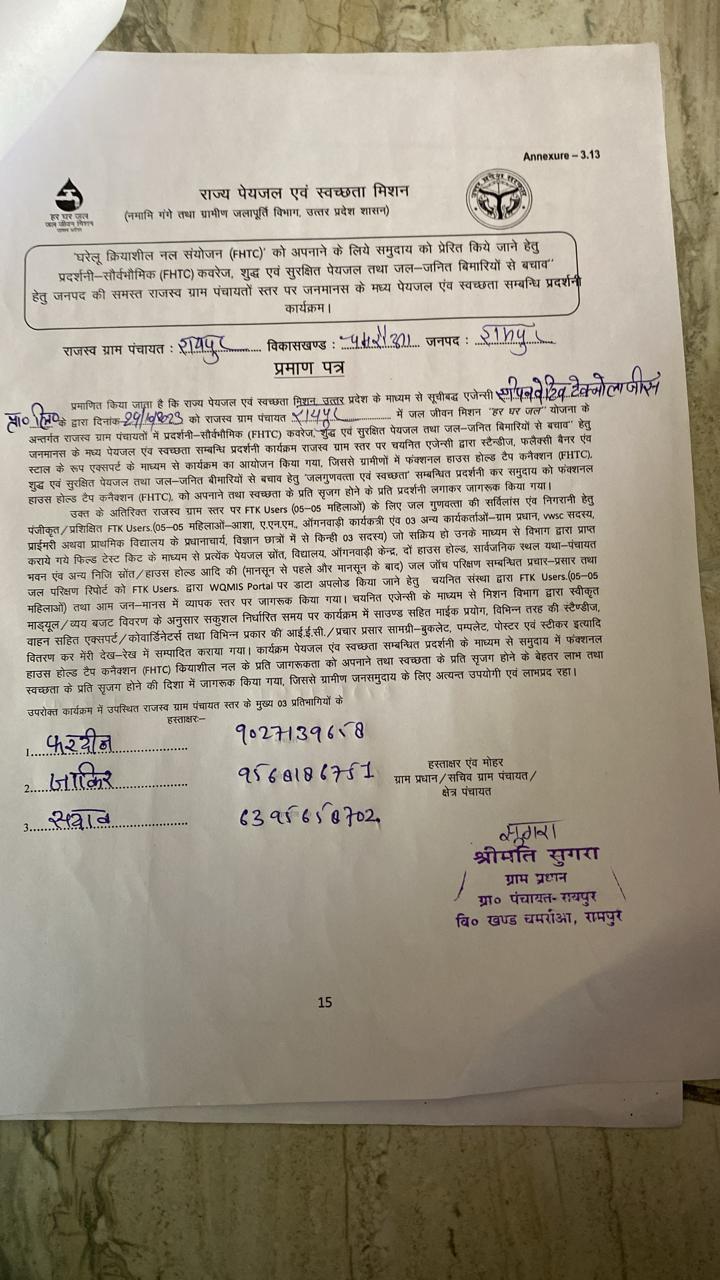 Annexure – 3.13
हर घर जल
जल जीवन मिशन
राज्य पेयजल एवं स्वच्छता मिशन
(नमामि गंगे तथा ग्रामीण जलापूर्ति विभाग, उत्तर प्रदेश शासन)
"घरेलू क्रियाशील नल संयोजन (FHTC)' को अपनाने के लिये समुदाय को प्रेरित किये जाने हेतु
प्रदर्शनी–सौर्वभौमिक (FHTC) कवरेज, शुद्ध एवं सुरक्षित पेयजल तथा जल–जनित बिमारियों से बचाव"
हेतु जनपद की समस्त राजस्व ग्राम पंचायतों स्तर पर जनमानस के मध्य पेयजल एंव स्वच्छता सम्बन्धि प्रदर्शनी
कार्यक्रम।
राजस्व ग्राम पंचायत : रायपुर विकासखण्ड : चमरौआ जनपद : रामपुर
प्रमाण पत्र
प्रमाणित किया जाता है कि राज्य पेयजल एवं स्वच्छता मिशन, उत्तर प्रदेश के माध्यम से सूचीबद्ध एजेन्सी
प्रा० लि० के द्वारा दिनांक को राजस्व ग्राम पंचायत रायपुर में जल जीवन मिशन "हर घर जल" योजना के
अन्तर्गत राजस्व ग्राम पंचायतों में प्रदर्शनी–सौर्वभौमिक (FHTC) कवरेज, शुद्ध एवं सुरक्षित पेयजल तथा जल–जनित बिमारियों से बचाव" हेतु
जनमानस के मध्य पेयजल एंव स्वच्छता सम्बन्धि प्रदर्शनी कार्यक्रम राजस्व ग्राम स्तर पर चयनित एजेन्सी द्वारा स्टैन्डीज, फलैक्सी बैनर एंव
स्टाल के रूप एक्सपर्ट के माध्यम से कार्यक्रम का आयोजन किया गया, जिससे ग्रामीणों में फंक्शनल हाउस होल्ड टैप कनैक्शन (FHTC),
शुद्ध एवं सुरक्षित पेयजल तथा जल–जनित बीमारियों से बचाव हेतु 'जलगुणवत्ता एवं स्वच्छता' सम्बन्धित प्रदर्शनी कर समुदाय को फंक्शनल
हाउस होल्ड टैप कनैक्शन (FHTC), को अपनाने तथा स्वच्छता के प्रति सृजग होने के प्रति प्रदर्शनी लगाकर जागरूक किया गया।
उक्त के अतिरिक्त राजस्व ग्राम स्तर पर FTK Users (05–05 महिलाओं) के लिए जल गुणवत्ता की सर्विलांस एंव निगरानी हेतु
पंजीकृत/प्रशिक्षित FTK Users.(05–05 महिलाओं-आशा, ए.एन.एम., ऑंगनवाड़ी कार्यकत्री एंव 03 अन्य कार्यकर्ताओं–ग्राम प्रधान, vwsc सदस्य,
प्राईमरी अथवा प्राथमिक विद्यालय के प्रधानाचार्य, विज्ञान छात्रों में से किन्ही 03 सदस्य) जो सक्रिय हो उनके माध्यम से विभाग द्वारा प्राप्त
कराये गये फिल्ड टेस्ट किट के माध्यम से प्रत्येक पेयजल स्रोत, विद्यालय, ऑंगनवाड़ी केन्द्र, दों हाउस होल्ड, सार्वजनिक स्थल यथा–पंचायत
भवन एंव अन्य निजि स्रोत/हाउस होल्ड आदि की (मानसून से पहले और मानसून के बाद) जल जॉंच परिक्षण सम्बन्धित प्रचार–प्रसार तथा
जल परिक्षण रिपोर्ट को FTK Users. द्वारा WQMIS Portal पर डाटा अपलोड किया जाने हेतु चयनित संस्था द्वारा FTK Users.(05–05
महिलाओं) तथा आम जन–मानस में व्यापक स्तर पर जागरूक किया गया। चयनित एजेन्सी के माध्यम से मिशन विभाग द्वारा स्वीकृत
माड्यूल/व्यय बजट विवरण के अनुसार सकुशल निर्धारित समय पर कार्यक्रम में साउण्ड सहित माईक प्रयोग, विभिन्न तरह की स्टैण्डीज,
वाहन सहित एक्सपर्ट/कोवार्डिनेटर्स तथा विभिन्न प्रकार की आई.ई.सी./प्रचार प्रसार सामग्री–बुकलेट, पम्पलेट, पोस्टर एवं स्टीकर इत्यादि
वितरण कर मेरी देख–रेख में सम्पादित कराया गया। कार्यक्रम पेयजल एंव स्वच्छता सम्बन्धित प्रदर्शनी के माध्यम से समुदाय में फंक्शनल
हाउस होल्ड टैप कनैक्शन (FHTC) कियाशील नल के प्रति जागरूकता को अपनाने तथा स्वच्छता के प्रति सृजग होने के बेहतर लाभ तथा
स्वच्छता के प्रति सृजग होने की दिशा में जागरूक किया गया, जिससे ग्रामीण जनसमुदाय के लिए अत्यन्त उपयोगी एवं लाभप्रद रहा।
उपरोक्त कार्यक्रम में उपस्थित राजस्व ग्राम पंचायत स्तर के मुख्य 03 प्रतिभागियों के
हस्ताक्षरः–
1. फरदीन 9027139658
2. जाकिर 9568186751
3. 6395658702
हस्ताक्षर एंव मोहर
ग्राम प्रधान/सचिव ग्राम पंचायत/
क्षेत्र पंचायत
सुगरा
श्रीमति सुगरा
ग्राम प्रधान
ग्रा० पंचायत- रायपुर
वि० खण्ड चमरौआ, रामपुर
15